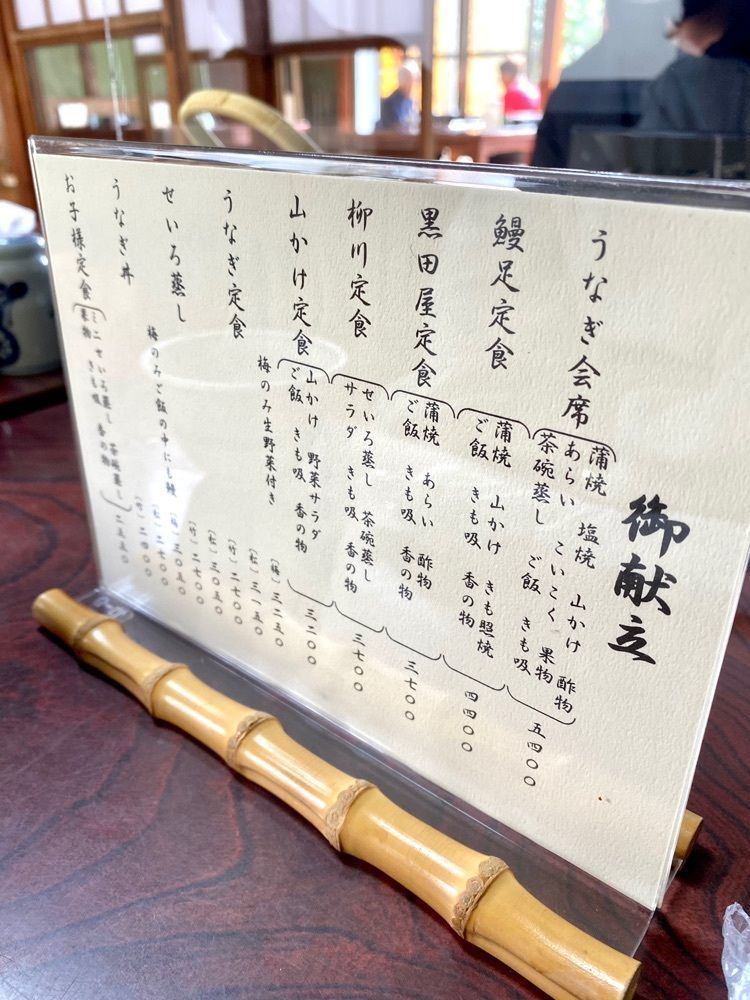 御献立
うなぎ会席
蒲焼 塩焼 山かけ 酢物
あらい こいこく 果物
茶碗蒸し ご飯 きも吸
五四〇〇
鰻足定食
蒲焼 山かけ きも照焼
ご飯 きも吸 香の物
四四〇〇
黒田屋定食
蒲焼 あらい 酢物
ご飯 きも吸 香の物
三七〇〇
柳川定食
せいろ蒸し 茶碗蒸し
サラダ きも吸 香の物
三七〇〇
山かけ定食
山かけ 野菜サラダ
ご飯 きも吸 香の物
三二〇〇
梅のみ生野菜付き
うなぎ定食
(梅)三二五〇
(松)三一五〇
(竹)二七〇〇
せいろ蒸し
(松)三〇五〇
(竹)二七〇〇
梅のみご飯の中にも鰻
(梅)三〇五〇
うなぎ丼
(松)二七〇〇
(竹)二四〇〇
お子様定食
ミニせいろ蒸し 茶碗蒸し
果物 きも吸 香の物
二五五〇